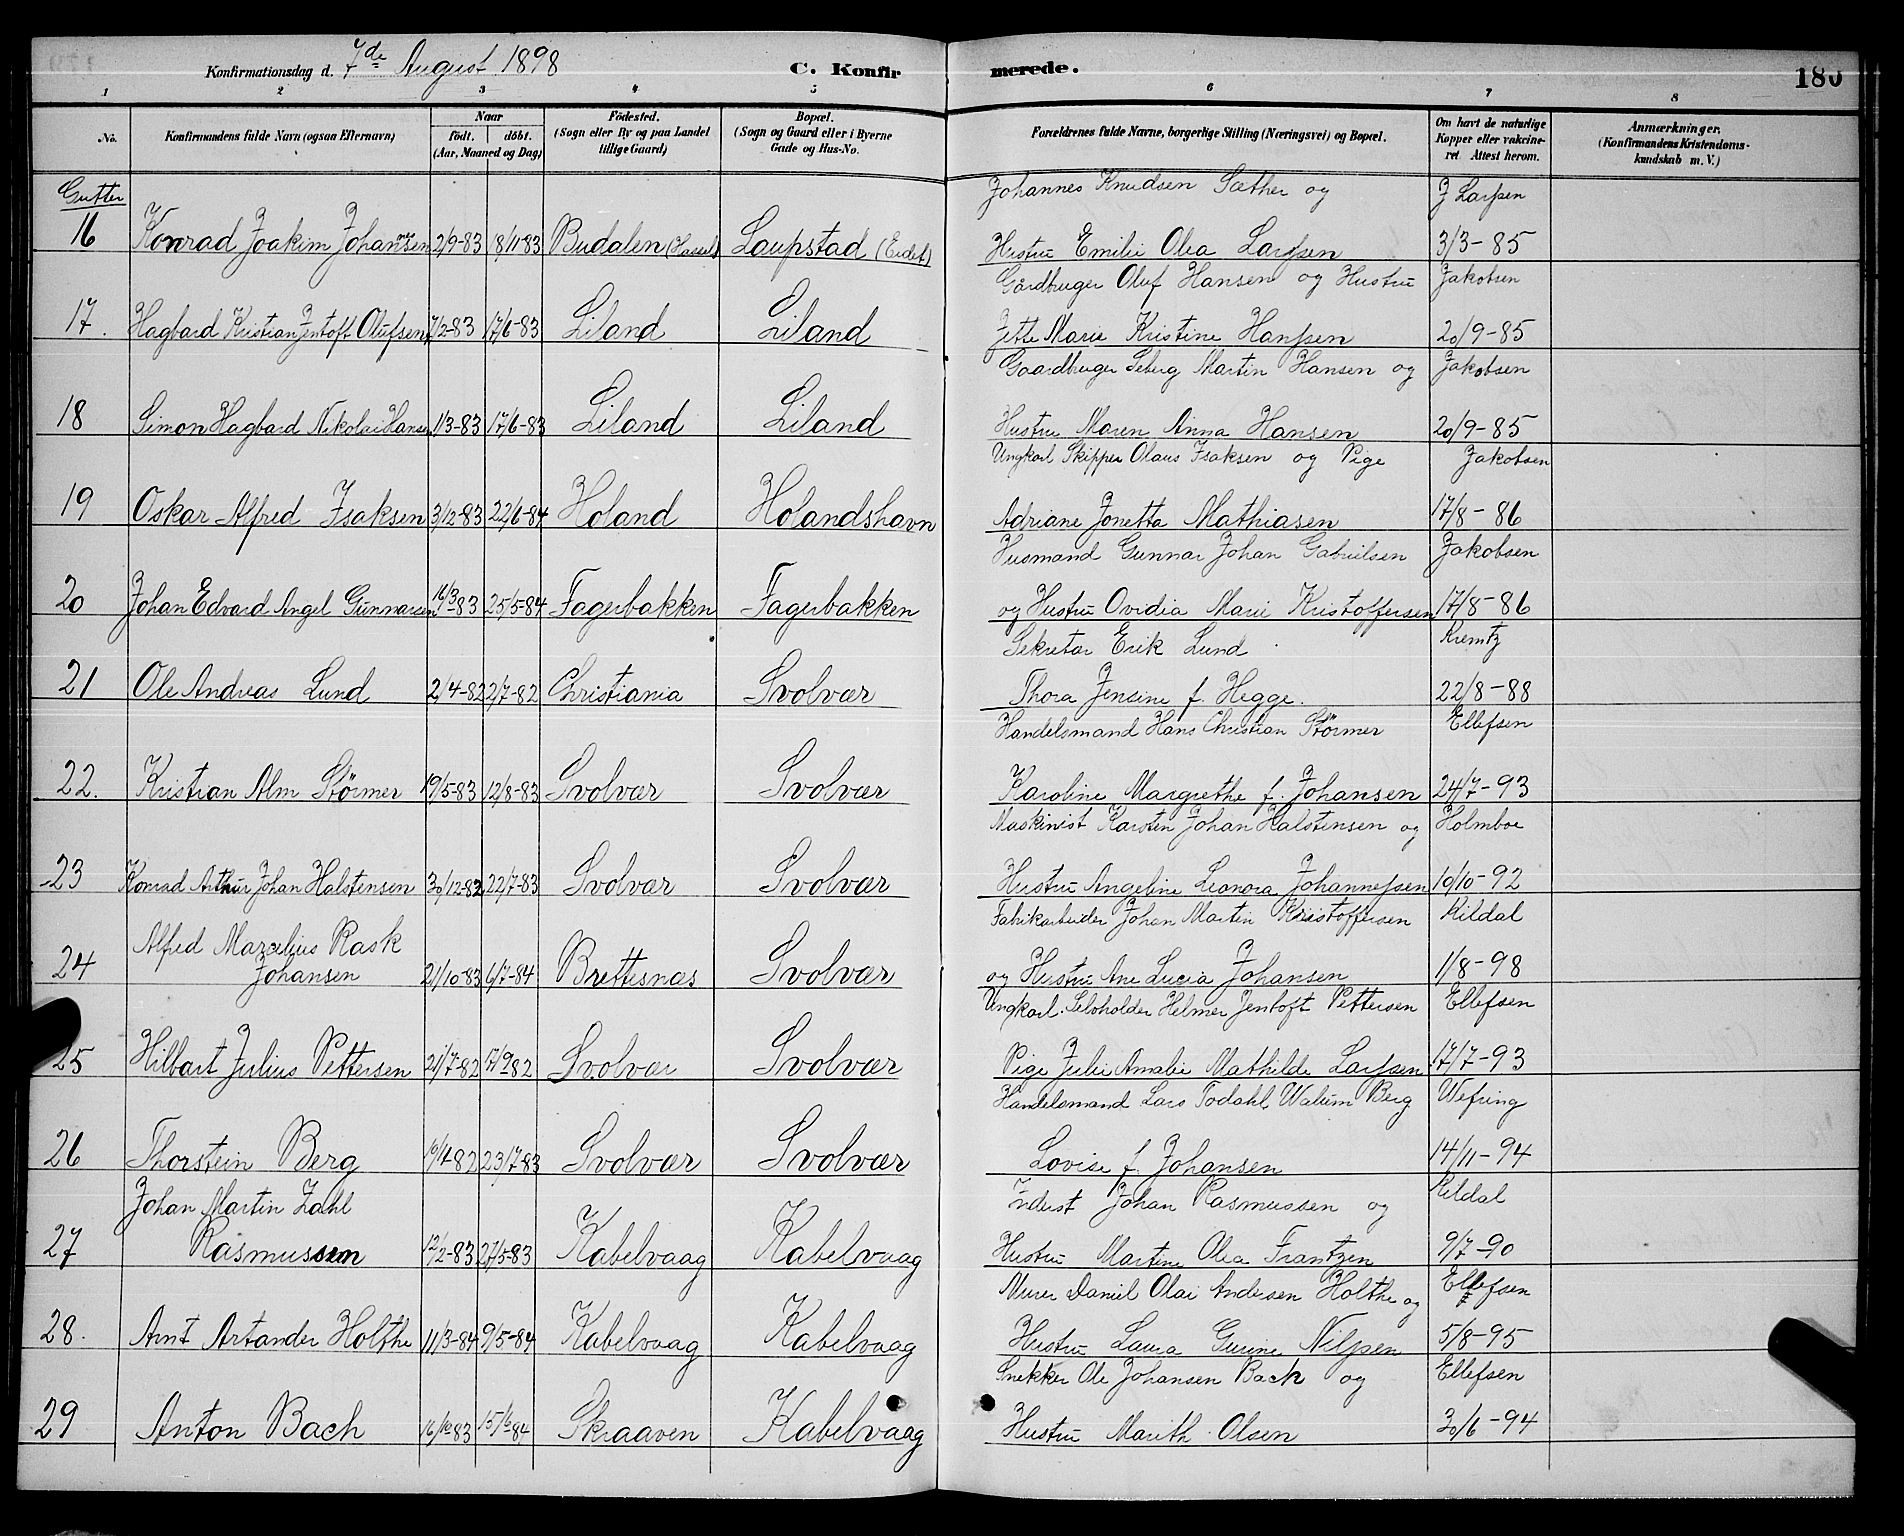 Konfirmationsdag d. 7de August 1898 C. Konfirmerede. 180
1 2 3 4 5 6 7 8
No. Konfirmandens fulde Navn (ogsaa Efternavn) Naar født. døbt. (Aar, Maaned og Dag) Fødested. (Sogn eller By og paa Landet tillige Gaard) Bopæl. (Sogn og Gaard eller i Byerne Gade og Hus-No. Forældrenes fulde Navne, borgerlige Stilling (Næringsvei) og Bopæl. Om havt de naturlige Kopper eller vakcineret Attest herom. Anmærkninger. (Konfirmandens Kristendomskundskab m. V.)
Gutter
Johannes Knudsen Sæther og J Larssen
16 Konrad Joakim Johansen 2/9-83 18/11-83 Budalen Laupstad (Eidet) Hustru Emilie Olea Larssen 3/3-85
Gårdbruger Oluf Hansen og Hustru Jakobsen
17. Hagbard Kristian Jentoft Olufsen 7/2-83 17/6-83 Liland Liland Jette Marie Kristine Hanssen 20/9-85
Gaardbruger Seberg Martin Hansen og Jakobsen
18 Simon Hagbard Nikolai Hansen 1/3-83 17/6-83 Liland Liland Hustru Maren Anna Hansen 20/9-85
Ungkarl Skipper Olaus Isaksen og Pige Jakobsen
19 Oskar Alfred Isaksen 3/12-83 22/6-84 Holand Holandshavn Adriane Jonetta Mathiasen 17/8-86
Husmand Gunnar Johan Gabrielsen Jakobsen
20 Johan Edvard Angel Gunnarsen 16/3-83 25/5-84 Fagerbakken Fagerbakken og Hustru Ovidia Marie Kristoffersen 17/8-86
Sekretær Erik Lund Kremtz
21 Ole Andreas Lund 2/4-82 2/7-82 Christiania Svolvær Thora Jensine f. Hegge. 22/8-88
Handelsmand Hans Christian Størmer Ellefsen
22. Kristian Alm Størmer 19/5-83 12/8-83 Svolvær Svolvær Karoline Margrethe f. Johansen 24/7-93
Maskinist Karsten Johan Halstensen og Holmboe
23 Konrad Arthur Johan Halstensen 30/12-82 22/7-83 Svolvær Svolvær Hustru Angeline Leonora Johannessen 10/10-92
Alfred Marcelius Rask Fabrikarbeider Johan Martin Kristoffersen Kildal
24 Johansen 21/10-83 6/7-84 Brettesnæs Svolvær og Hustru Ane Lucia Johansen 1/8-98
Ungkarl. Selvholder Helmer Jentoft Pettersen Ellefsen
25 Hilbart Julius Pettersen 21/7-82 17/9-82 Svolvær Svolvær Pige Julie Amalie Mathilde Larssen 17/7-93
Handelsmand Lars Todahl Walum Berg Wefring
26 Thorstein Berg 19/4-82 23/7-83 Svolvær Svolvær Lovise f. Johansen 14/11-94
Johan Martin Zahl Inderst Johan Rasmussen og Kildal
27 Rasmussen 12/2-83 27/5-83 Kabelvaag Kabelvaag Hustru Martine Olea Frantzen 9/7-90
Murer Daniel Olai Andersen Holthe og Ellefsen
28. Arnt Artander Holthe 11/3-84 9/5-84 Kabelvaag Kabelvaag Hustru Laura Gurine Nilssen 5/8-95
Snekker Ole Johansen Bach og Ellefsen
29 Anton Bach 16/10-83 15/6-84 Skraaven Kabelvaag Hustru Marith Olsen 30/6-94